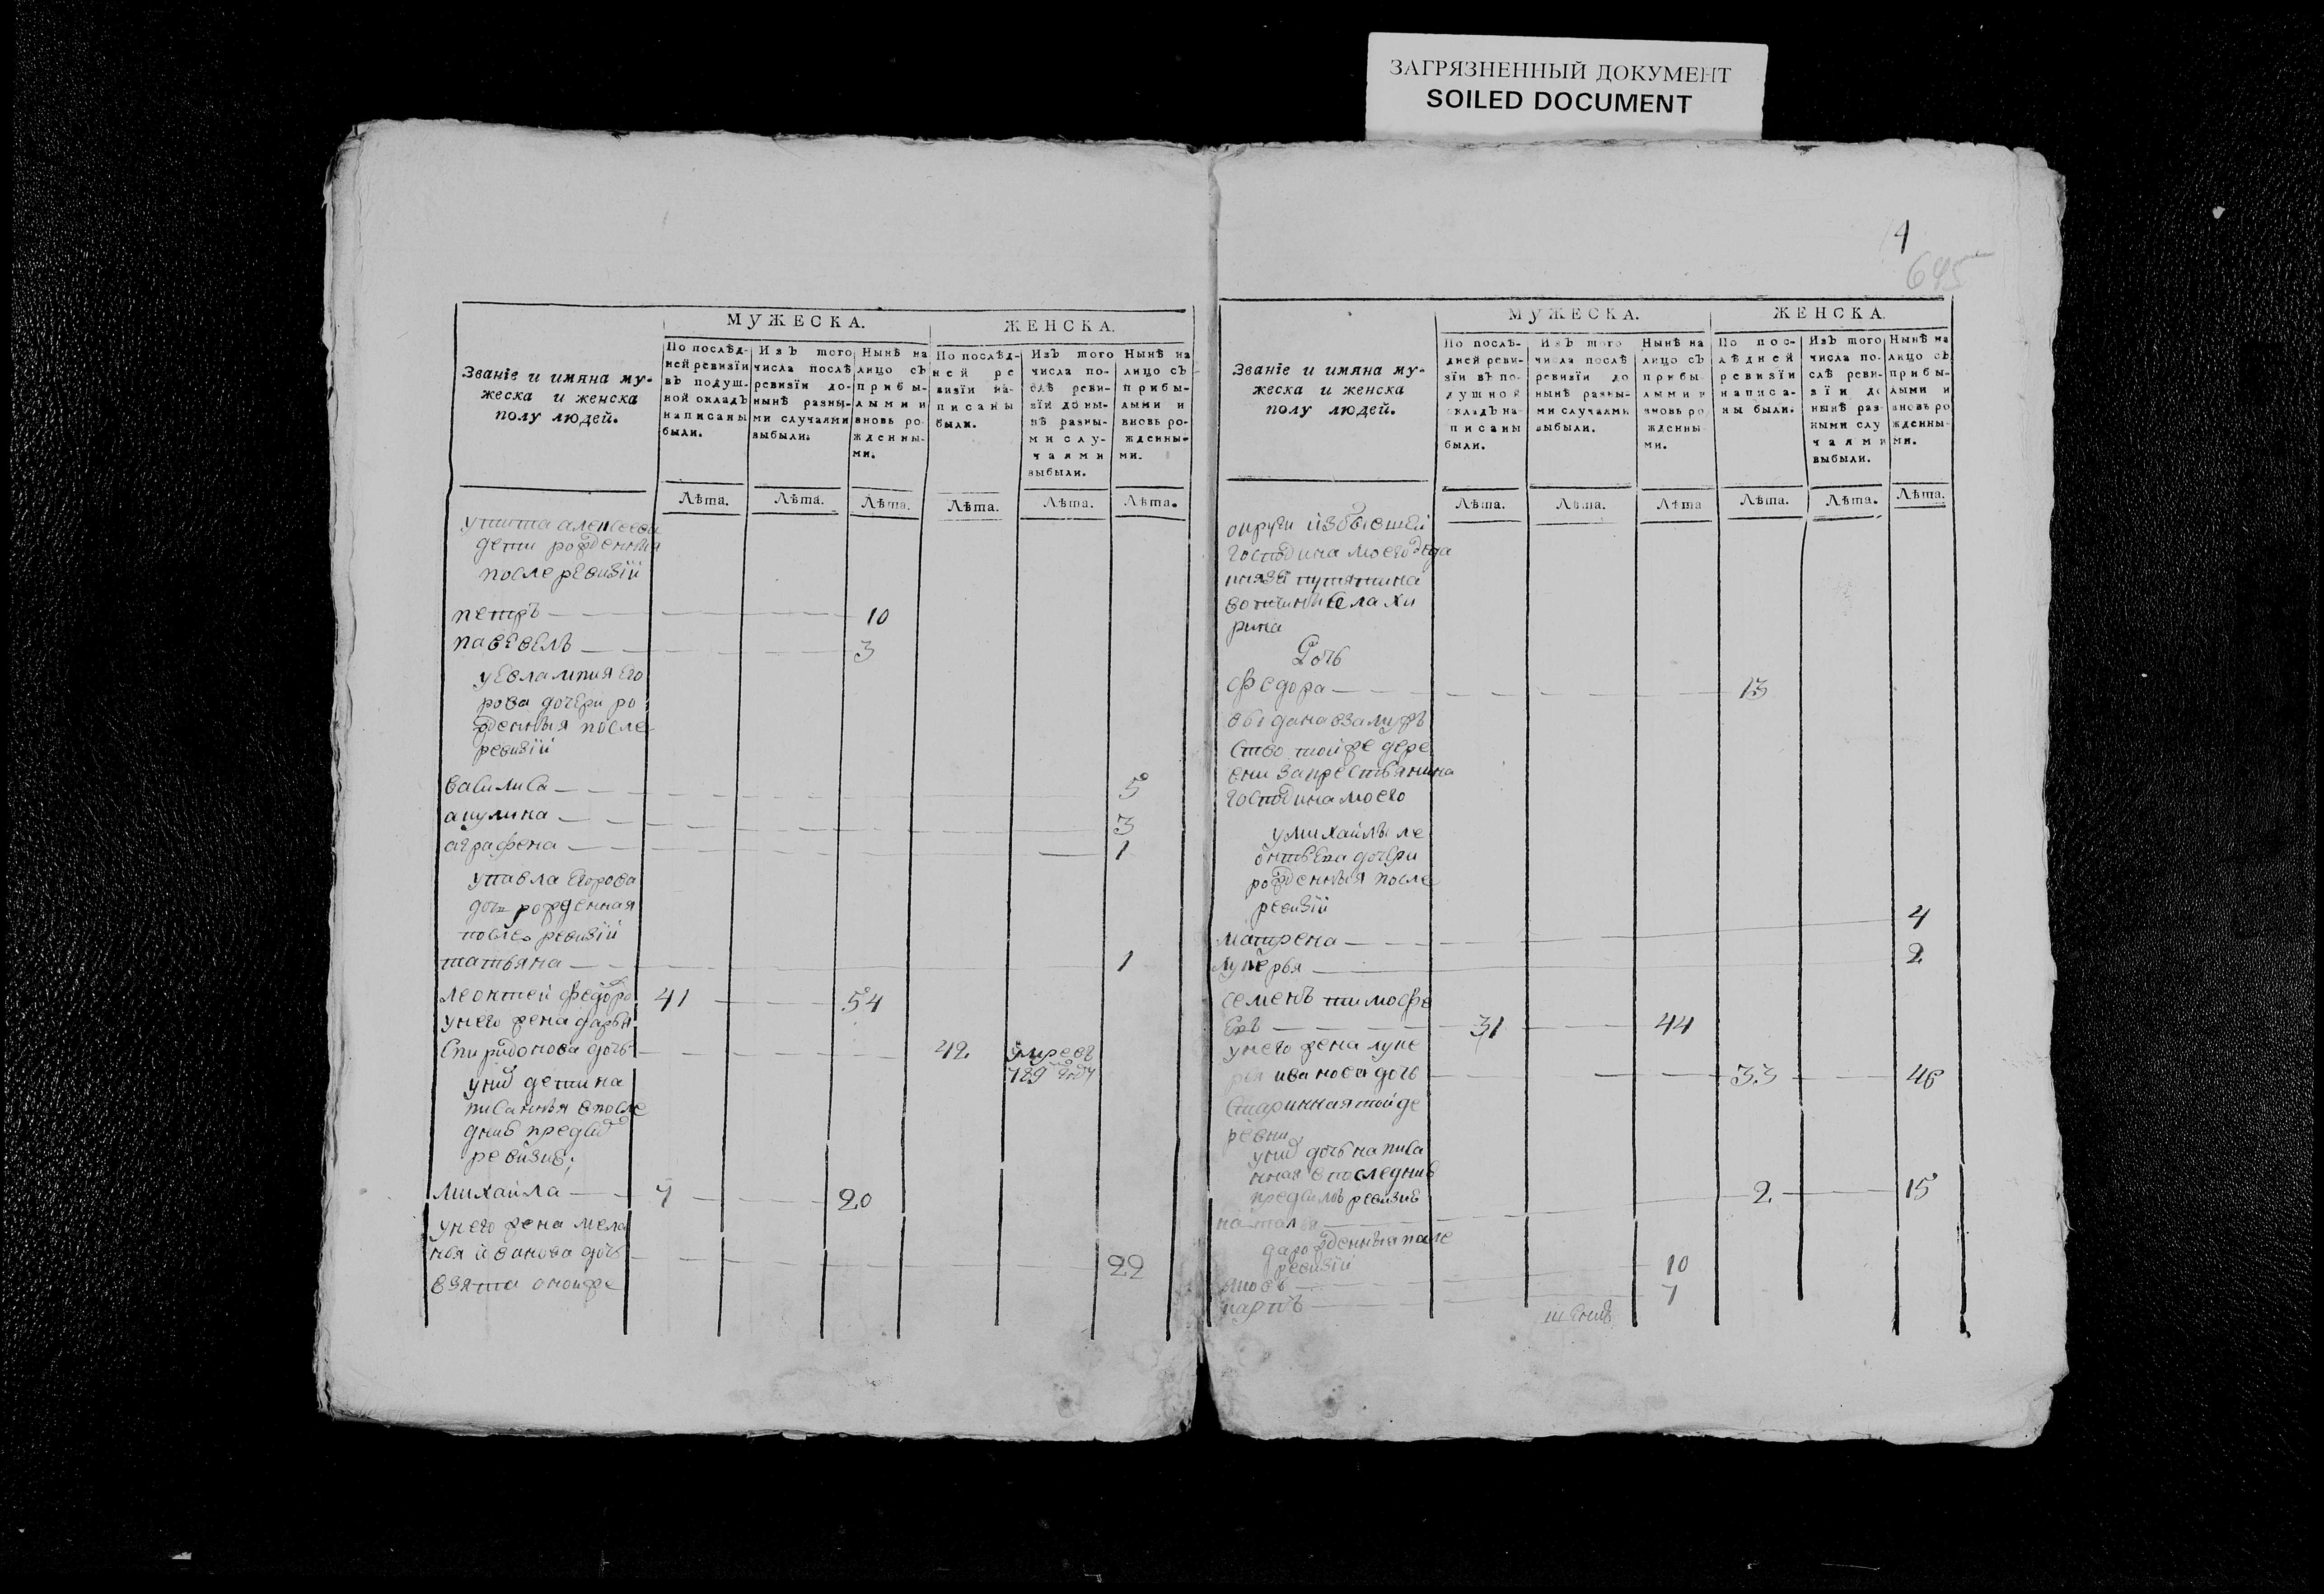 ЗАГРЯЗНЕННЫЙ ДОКУМЕНТ
SOILED DOCUMENT
МУЖЕСКА.
ЖЕНСКА.
Званіе и имяна му-
жеска и женска
полу людей.
По послѣд-
ней ревизїи
въ подуш-
ной окладъ
написаны
были.
Изъ того
числа послѣ
ревизїи до-
нынѣ разны-
ми случаями
выбыли.
Нынѣ на
лицо съ
прибы-
лыми и
вновь ро-
жденны-
ми.
По послѣд-
ней ре
визїи на-
писаны
были.
Изъ того
числа по-
слѣ реви-
зїи до ны-
нѣ разны-
ми слу-
чаями
выбыли.
Нынѣ на
лицо съ
прибы-
лыми и
вновь ро-
жденны-
ми.
Лѣта. Лѣта. Лѣта. Лѣта. Лѣта. Лѣта.
алексеева
дети рожденныя
после ревизїи
петръ 10
павевелъ 3
у евлампия его
рова дочери ро
жденныя после
ревизїи
василиса 5
акулина 3
аграфена 1
у павла егорова
дочь рожденная
после ревизїи
татьяна 1
леонтей федоро 41 54
у него жена дарья
спиридонова дочь 42 умре въ
789 году
у них дети на
писанныя в после
днив пред сид
ревизив;
михайла 7 20
у него жена мела
нья иванова дочь 22
взята оной же
4
645
МУЖЕСКА.
ЖЕНСКА.
Званіе и имяна му-
жеска и женска
полу людей.
По послѣ-
дней реви-
зїи въ по-
душной
окладъ на-
писаны
были.
Изъ того
числа послѣ
ревизїи до
нынѣ разны-
ми случаями
выбыли.
Нынѣ на
лицо съ
прибы-
лыми и
вновь ро
жденны
ми.
По пос-
лѣдней
ревизїи
написа-
ны были.
Изъ того
числа по-
слѣ реви-
зїи до
нынѣ раз-
ными слу
чаями
выбыли.
Нынѣ на
лицо съ
прибы-
лыми и
вновь ро
жденны-
ми.
Лѣта. Лѣта. Лѣта Лѣта. Лѣта. Лѣта.
округи из бывшей
господина моего деда
князя путятина
вотчины села хи
рина
Дочь
федора 13
выдана в замуж
ство той же дере
вни за крестьянина
господина моего
у михайлы ле
онтьева дочери
рожденныя после
ревизїи
матрена 4
лукерья 2
семенъ тимофе
евъ 31 44
у него жена луке
рья иванова дочь 33 46
старинная той де
ревни
у них дочь написа
нная в последнив
пред сим ревизив
наталья 2 15
да рожденныя после
ревизїи
10
карпъ 7